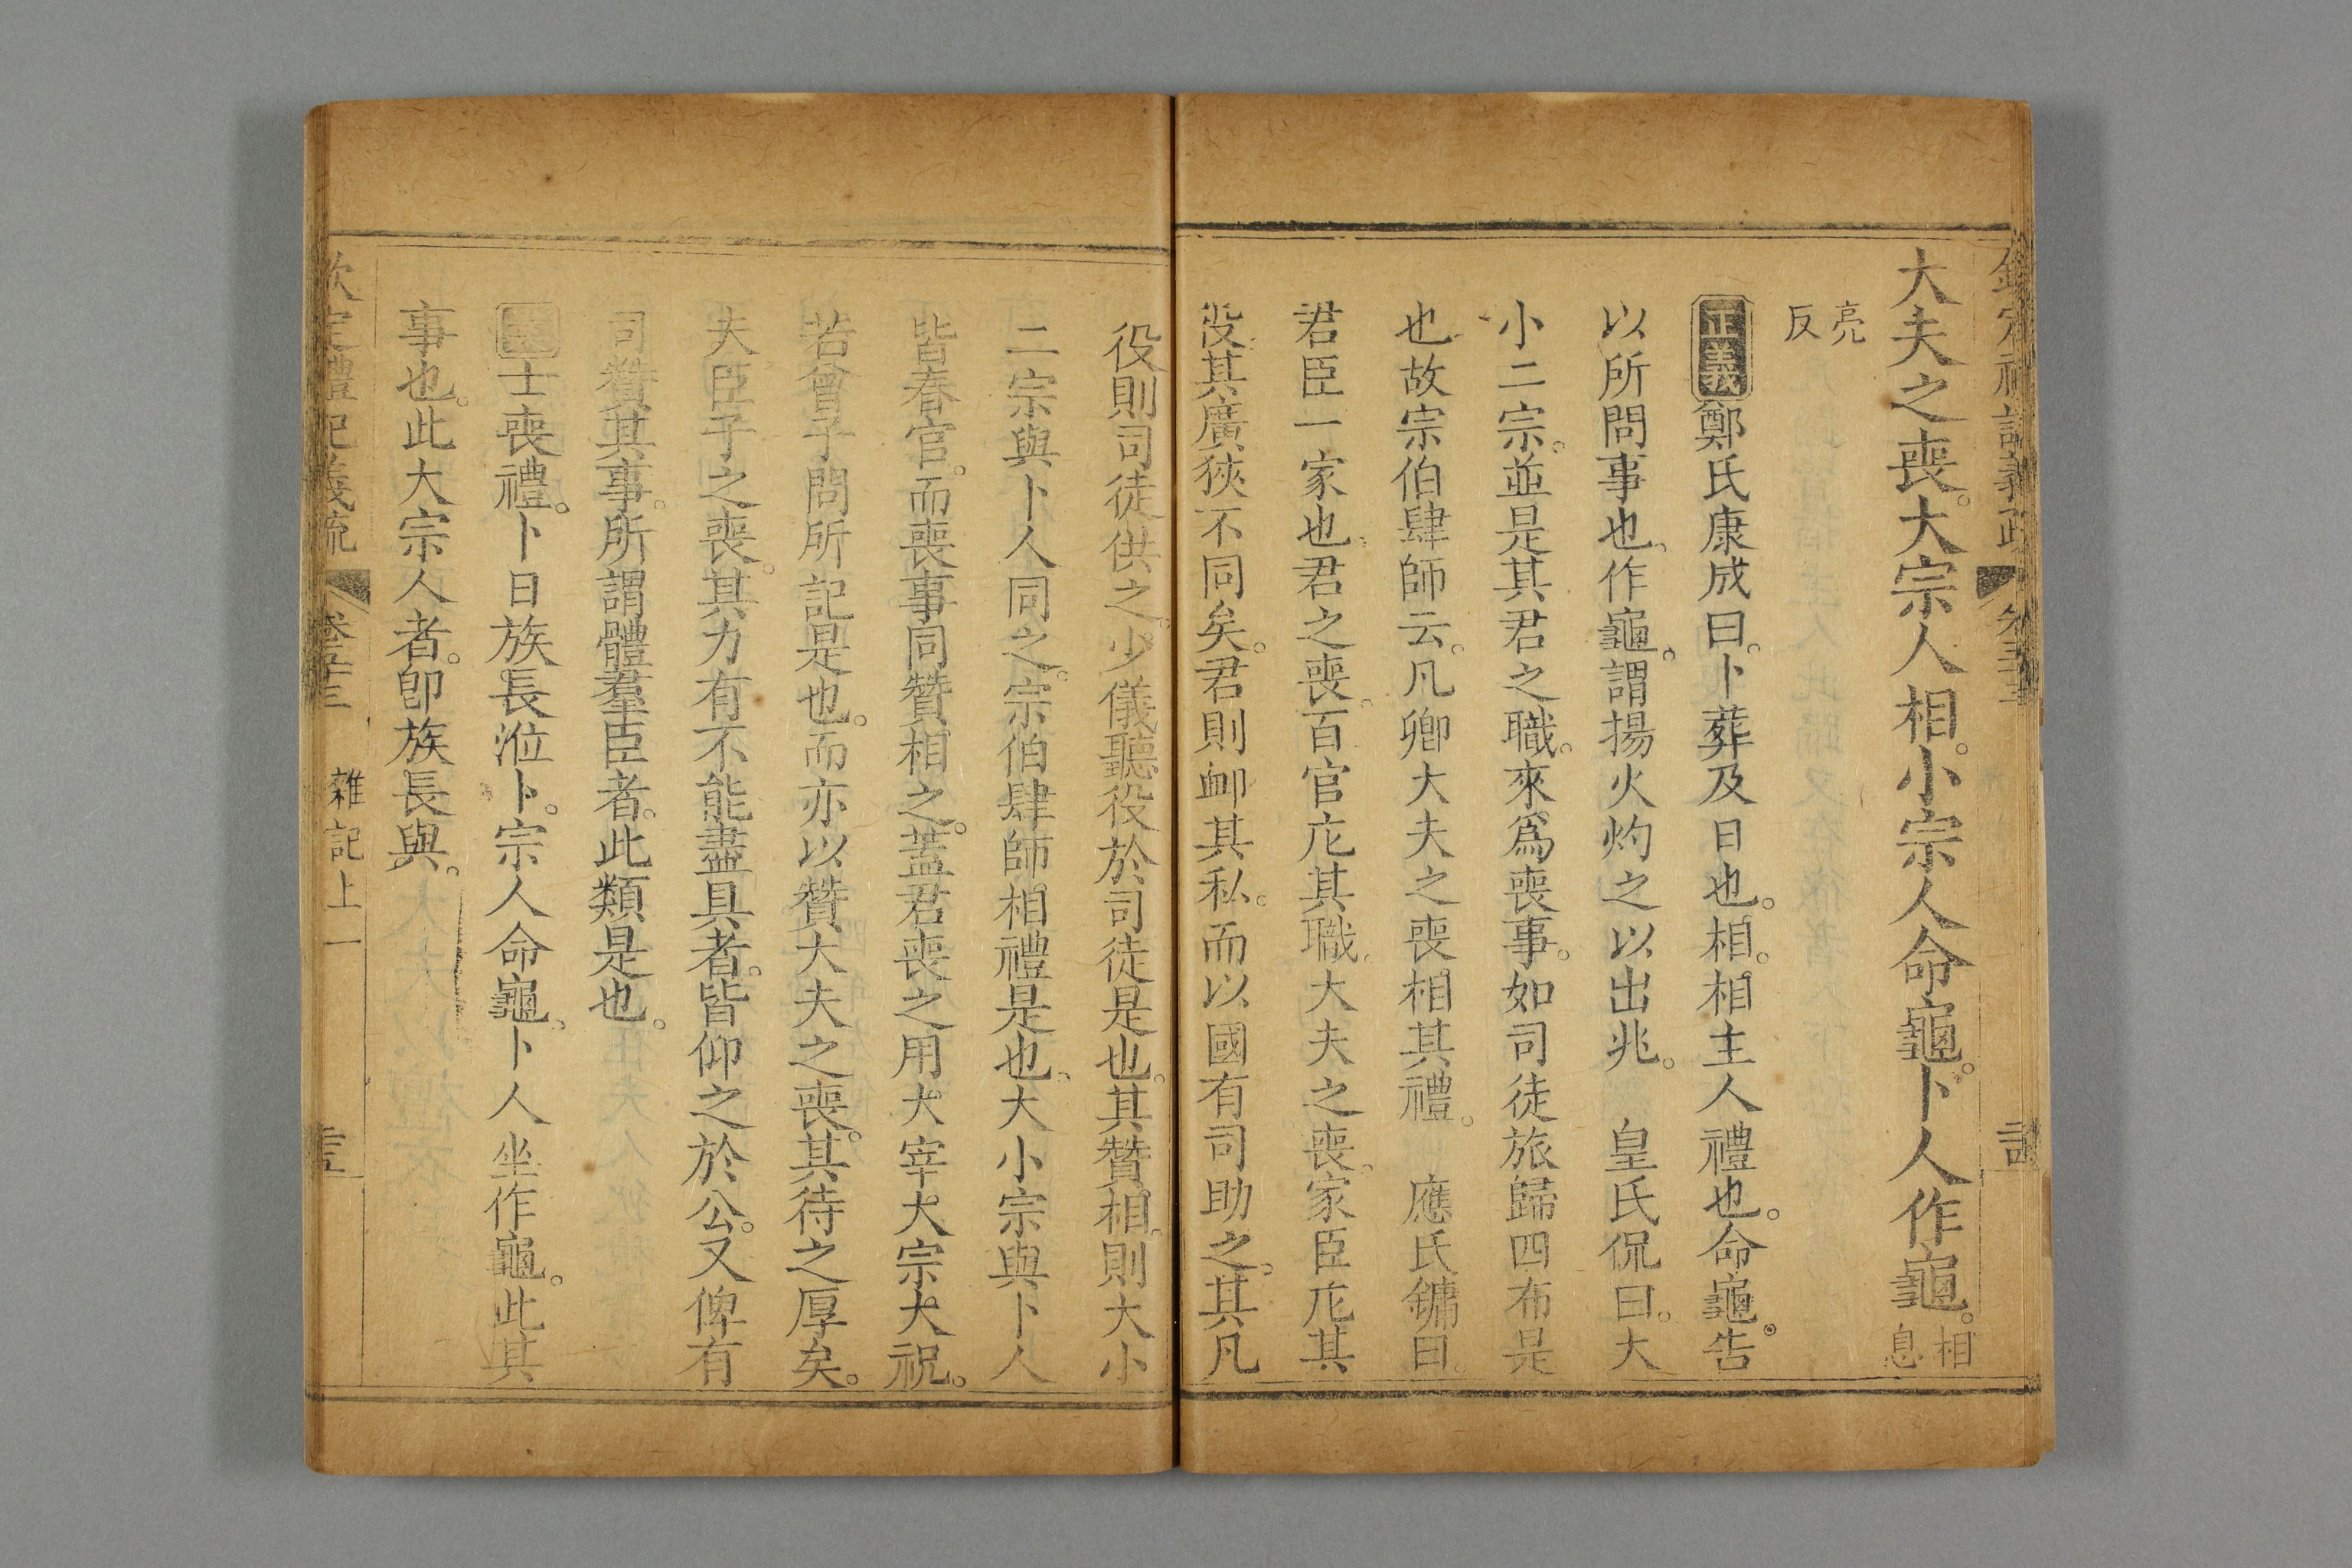 大夫之喪。大宗人相。小宗人命龜。卜人作龜。相息
亮反
正義鄭氏康成曰。卜葬及日也。相。相主人禮也。命龜。告
以所問事也。作龜。謂揚火灼之以出兆。 皇氏侃曰。大
小二宗。並是其君之職。來爲喪事。如司徒旅歸四布是
也。故宗伯肆師云。凡卿大夫之喪。相其禮。 應氏鏞曰。
君臣一家也。君之喪。百官庀其職。大夫之喪。家臣庀其
役。其廣狹不同矣。君則卹其私。而以國有司助之。其凡
役則司徒供之。少儀聽役於司徒是也。其贊相。則大小
二宗與卜人同之。宗伯肆師相禮是也。大小宗與卜人
皆春官。而喪事同贊相之。蓋君喪之用大宰大宗大祝。
若曾子問所記是也。而亦以贊大夫之喪。其待之厚矣。
夫臣子之喪。其力有不能盡具者。皆仰之於公。又俾有
司贊其事。所謂體羣臣者。此類是也。
士喪禮。卜日族長涖卜。宗人命龜。卜人坐作龜。此其
事也。此大宗人者。卽族長與。
欽定禮記義疏 卷五十三 雜記上一